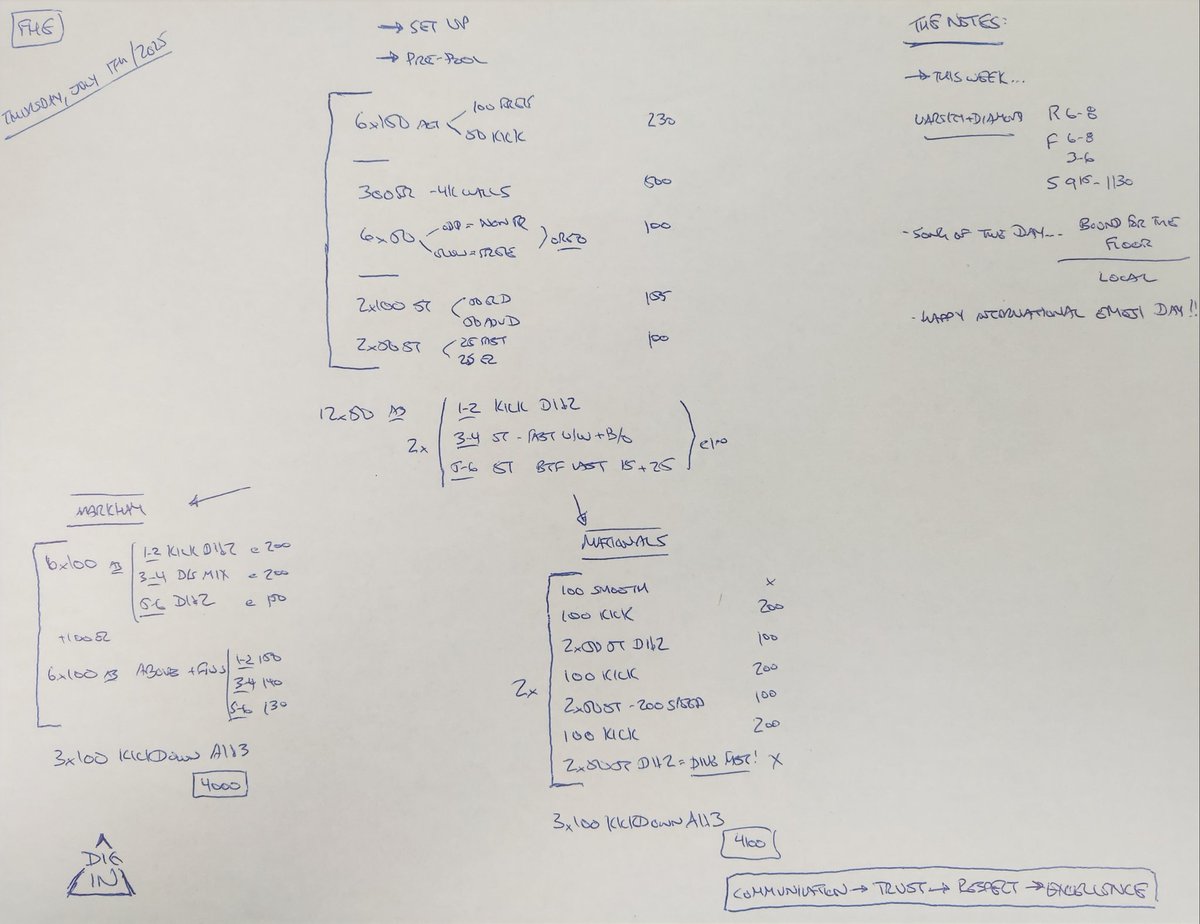 FHE
THURSDAY, JULY 17TH/2025
→ SET UP
→ PRE-POOL
6x150 AS 100 FREE 230
50 KICK
300 - 4K WALLS 500
6x50 ODD = NON FR 100
EVEN = FREE
2x100 ST 50 BLD 155
50 ADVD
2x50 ST 25 FAST 100
25 EZ
12x50 AS
2x
1-2 KICK D1&2
3-4 ST - FAST U/W + B/O
5-6 ST BTF LAST 15 + 25
@100
THE NOTES:
→ THIS WEEK...
VARSITY+DIAMOND R 6-8
F 6-8
3-6
S 915-1130
- SONG OF THE DAY... BOUND FOR THE
FLOOR
LOCAL
- HAPPY INTERNATIONAL EMOJI DAY!!
MARKHAM
6x100 AS 1-2 KICK D1&2 @ 200
3-4 MIX @ 200
5-6 D1&2 @ 150
+100 EZ
6x100 AS ABOVE + 1-2 150
3-4 140
5-6 130
3x100 KICKDOWN A1&3
4000
NATIONALS
2x
100 SMOOTH X
100 KICK 200
2x50 ST D1&2 100
100 KICK 200
2x50 ST - 200 SPEED 100
100 KICK 200
2x50 ST D1&2 = DIVE FAST! X
3x100 KICKDOWN A1&3
4100
DIG
IN
COMMUNICATION → TRUST → RESPECT → EXCELLENCE